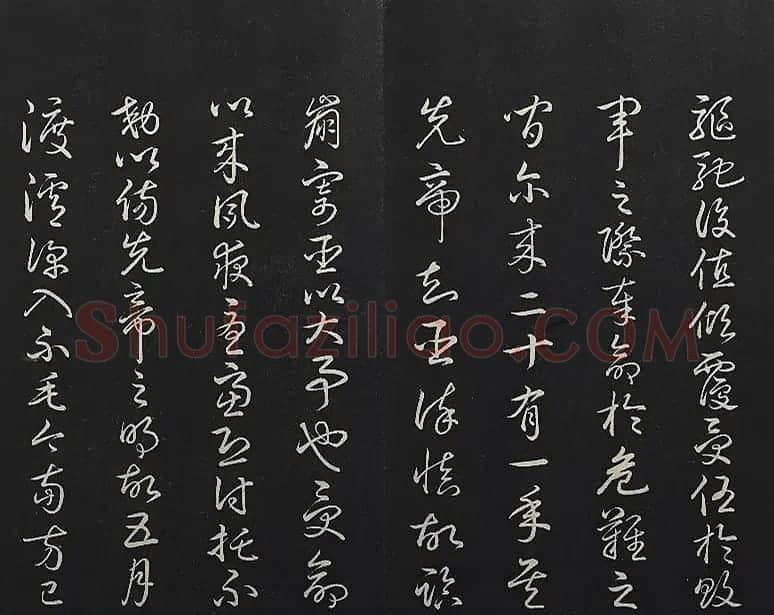 驅馳後值傾覆受任於敗
軍之際奉命於危難之
間尔來二十有一年矣
先帝知臣謹慎故臨
崩寄臣以大事也受命
以來夙夜憂慮恐付托不
效以傷先帝之明故五月
渡瀘深入不毛今南方已
Shufaziliao.COM